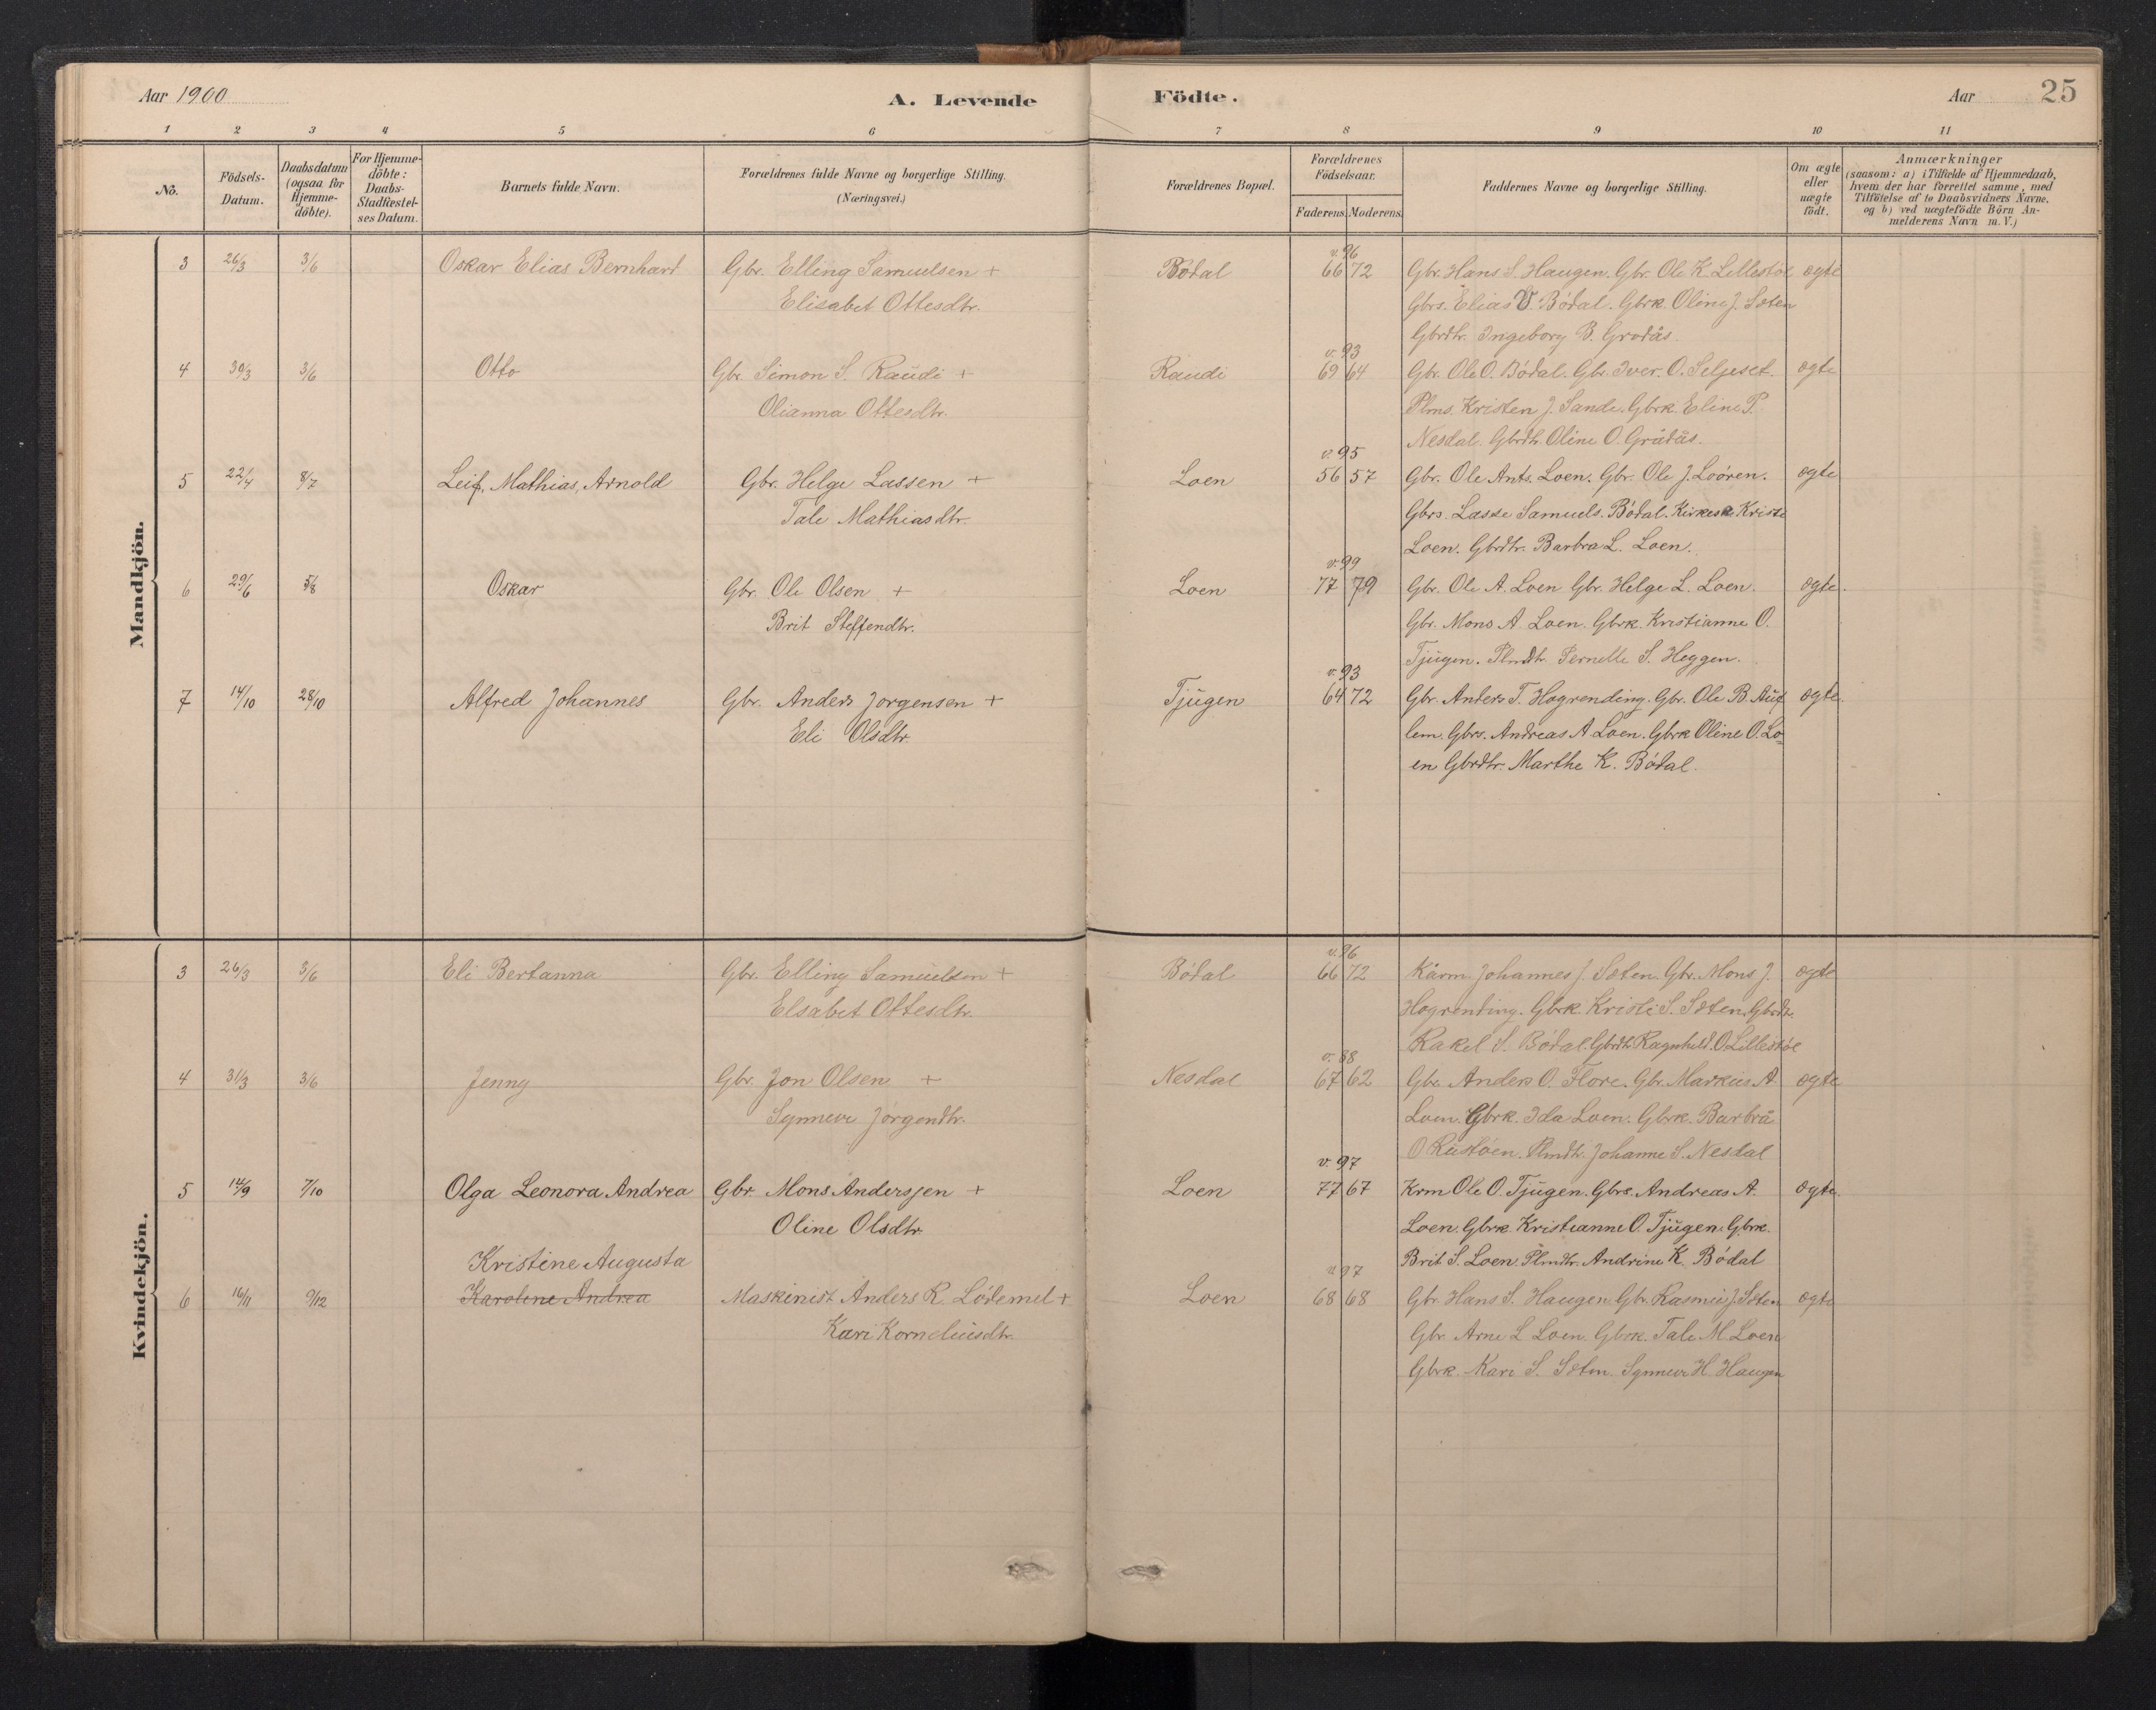 Aar 1900
A. Levende Födte.
Aar
25
1 2 3 4 5 6 7 8 9 10 11
No.
Födsels-
Datum.
Daabsdatum
(ogsaa for
Hjemme-
döbte).
For Hjemme-
döbte:
Daabs-
Stadfæstel-
ses Datum.
Barnets fulde Navn.
Forældrenes fulde Navne og borgerlige Stilling.
(Næringsvei.)
Forældrenes Bopæl.
Forældrenes
Födselsaar.
Faderens. Moderens.
Faddernes Navne og borgerlige Stilling.
Om ægte
eller
uægte
födt.
Anmærkninger
(saasom: a) i Tilfælde af Hjemmedaab,
hvem der har forrettet samme, med
Tilföielse af to Daabsvidners Navne,
og b) ved uægtefödte Börn An-
melderens Navn m. V.)
Mandkjön.
v. 96
3 26/3 3/6 Oskar Elias Bernhard Gbr. Elling Samuelsen + Bödal 66 72 Gbr. Hans S. Haugen. Gbr. Ole K. Lillestöl ægte
Elisabet Ottesdtr. Gbrs. Elias V. Bödal. Gbrk. Oline J. Sæten
Gbrdtr. Ingeborg B. Grodås.
v. 93
4 30/3 3/6 Otto Gbr. Simon S. Raudi + Raudi 69 64 Gbr. Ole O. Bödal. Gbr. Iver. O. Seljeset. ægte
Olianna Ottesdtr. Plms. Kristen J. Sande. Gbrk. Eline P.
Nesdal. Gbrdtr. Oline O. Grådås.
v. 95
5 22/4 8/7 Leif, Mathias, Arnold Gbr. Helge Lassen + Loen 56 57 Gbr. Ole Ants. Loen. Gbr. Ole J. Loören. ægte
Tale Mathiasdtr. Gbrs. Lasse Samuels. Bödal. Kristi
Loen. Gbrdtr. Barbra L. Loen.
v. 99
6 29/6 5/8 Oskar Gbr. Ole Olsen + Loen 77 79 Gbr. Ole A. Loen Gbr. Helge L. Loen. ægte.
Brit Steffendtr. Gbr. Mons A. Loen. Gbrk. Kristianne O.
Tjugen. Plmdtr. Pernelle S. Heggen.
v. 93
7 14/10 28/10 Alfred Johannes Gbr. Anders Jörgensen + Tjugen 64 72 Gbr. Anders T. Hogrending. Gbr. Ole B. Auf ægte.
Eli Olsdtr. lem. Gbrs. Andreas A Loen. Gbrk Oline O. Lo-
en Gbrdtr. Marthe K. Bödal.
Kvindekjön.
v. 96
3 26/3 3/6 Eli Bertanna Gbr. Elling Samuelsen + Bödal 66 72 Kårm. Johannes J. Sæten. Gbr. Mons J. ægte
Elsabet Ottesdtr. Hogrending. Gbrk. Kristi S. Sæten. Gbrdtr.
Rakel S. Bödal. Gbrdtr. Ragnhild. O Lillestöl
v. 88
4 31/3 3/6 Jenny Gbr. Jon Olsen + Nesdal 67 62 Gbr. Anders O. Flore. Gbr. Markus A ægte
Synneve Jörgendtr. Loen. Gbrk. Ida Loen. Gbrk. Barbra
O Rustöen. Plmdtr. Johanne S. Nesdal
v. 97
5 14/9 7/10 Olga Leonora Andrea Gbr. Mons Anderssen + Loen 77 67 Krm Ole O. Tjugen. Gbrs. Andreas A. ægte.
Oline Olsdtr. Loen. Gbrk. Kristianne O. Tjugen. Gbrk.
Kristine Augusta Brit S. Loen. Plmdtr. Andrine K. Bödal
v. 97
6 16/11 9/12 Karolene Andrea Maskinist Anders R. Lödemel + Loen 68 68 Gbr. Hans S. Haugen. Gbr. Rasmus J. Sæten ægte
Kari Korneliusdtr. Gbr. Arne L Loen. Gbrk. Tale M. Loen
Gbrk. Kari S. Sæten. Synneve H. Haugen